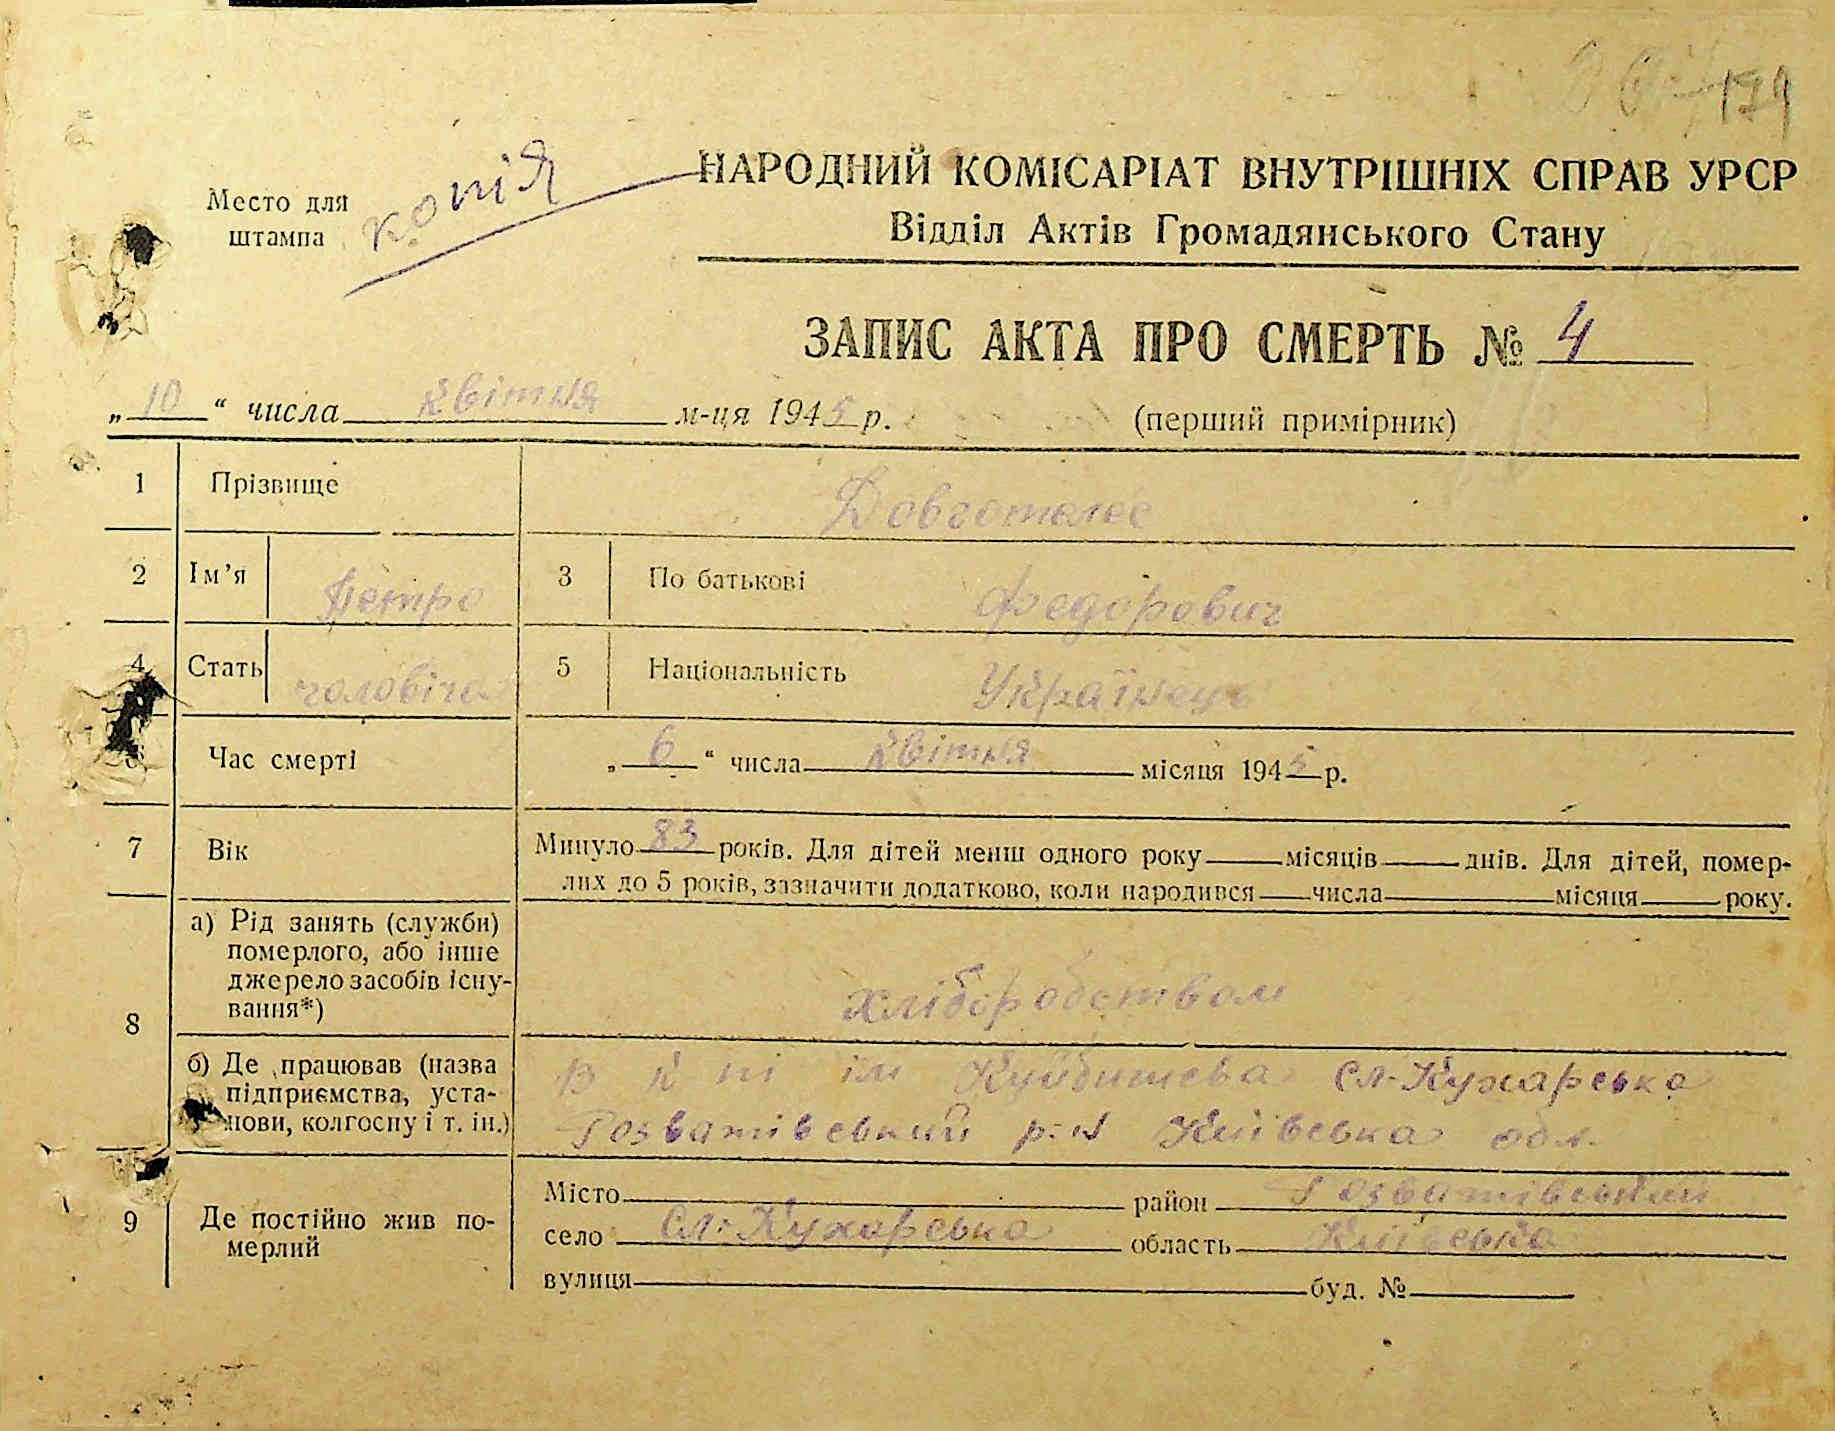 179
Место для
штампа
копія
НАРОДНИЙ КОМІСАРІАТ ВНУТРІШНІХ СПРАВ УРСР
Відділ Актів Громадянського Стану
ЗАПИС АКТА ПРО СМЕРТЬ № 4
„10“ числа квітня м-ця 1945 р. (перший примірник)
1 Прізвище Довготелес
2 Ім’я Петро 3 По батькові Федорович
4 Стать чоловіча 5 Національність Українець
6 Час смерті „6“ числа квітня місяця 1945 р.
7 Вік Минуло 83 років. Для дітей менш одного року місяців днів. Для дітей, помер-
лих до 5 років, зазначити додатково, коли народився числа місяця року.
8 а) Рід занять (служби)
померлого, або інше
джерело засобів існу-
вання*) хліборобством
б) Де працював (назва
підприємства, уста-
нови, колгоспу і т. ін.)
В к пі ім Куйбишева Сл-Кухарська
Розватівський р-н Київська обл.
9 Де постійно жив по-
мерлий
Місто район Розватівський
село Сл-Кухарська область Київська
вулиця буд. №